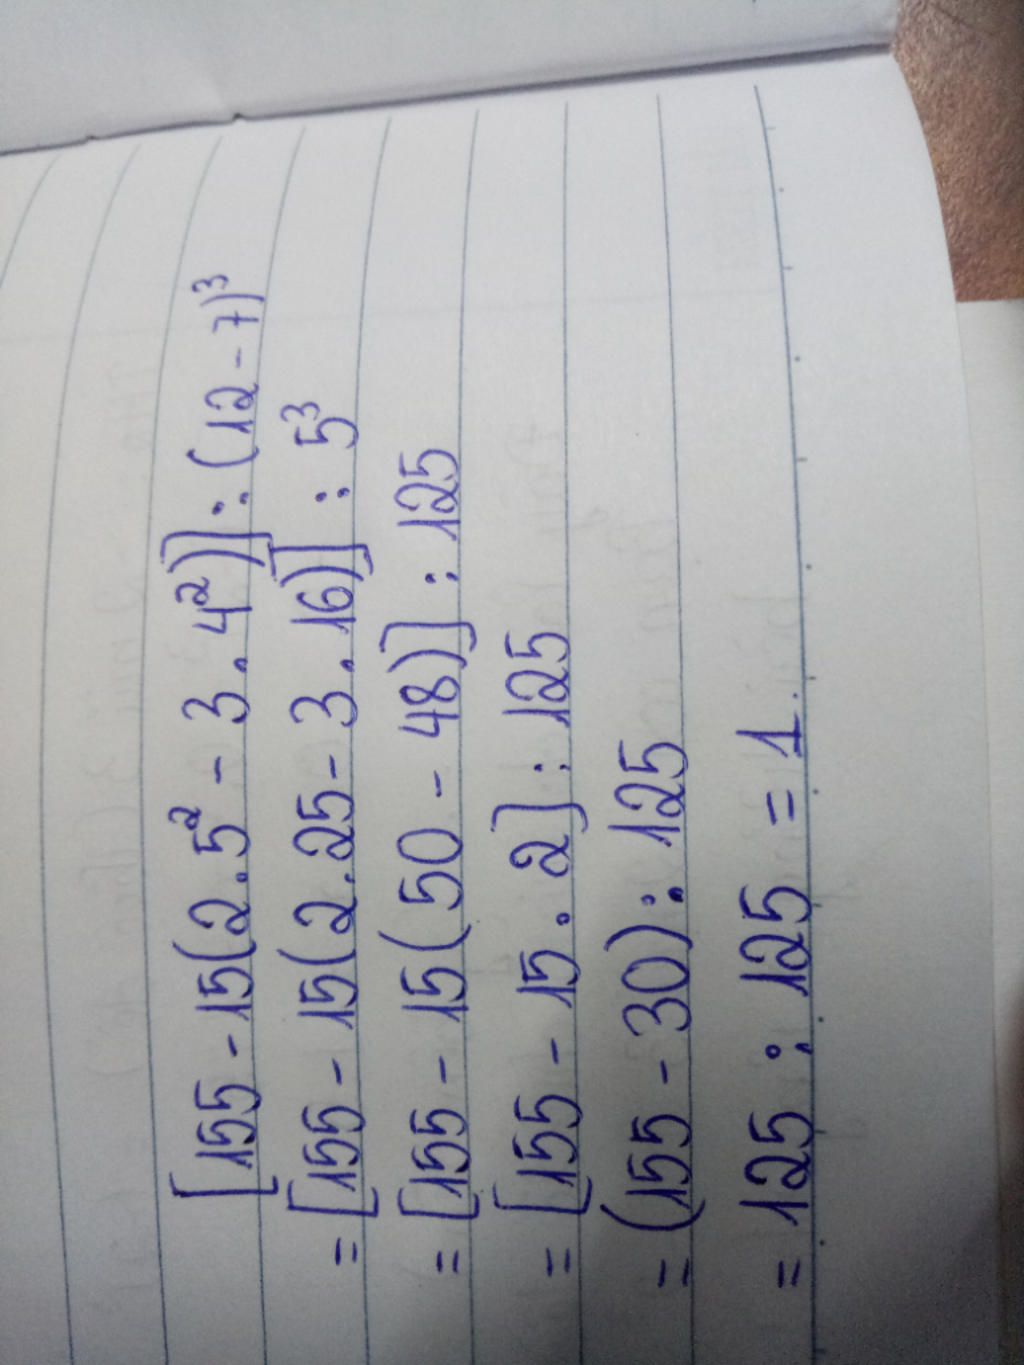 [155 - 15(2.5² - 3.4²)] : (12 - 7)³
= [155 - 15(2.25 - 3.16)] : 5³
= [155 - 15(50 - 48)] : 125
= [155 - 15.2] : 125
= (155 - 30) : 125
= 125 : 125 = 1